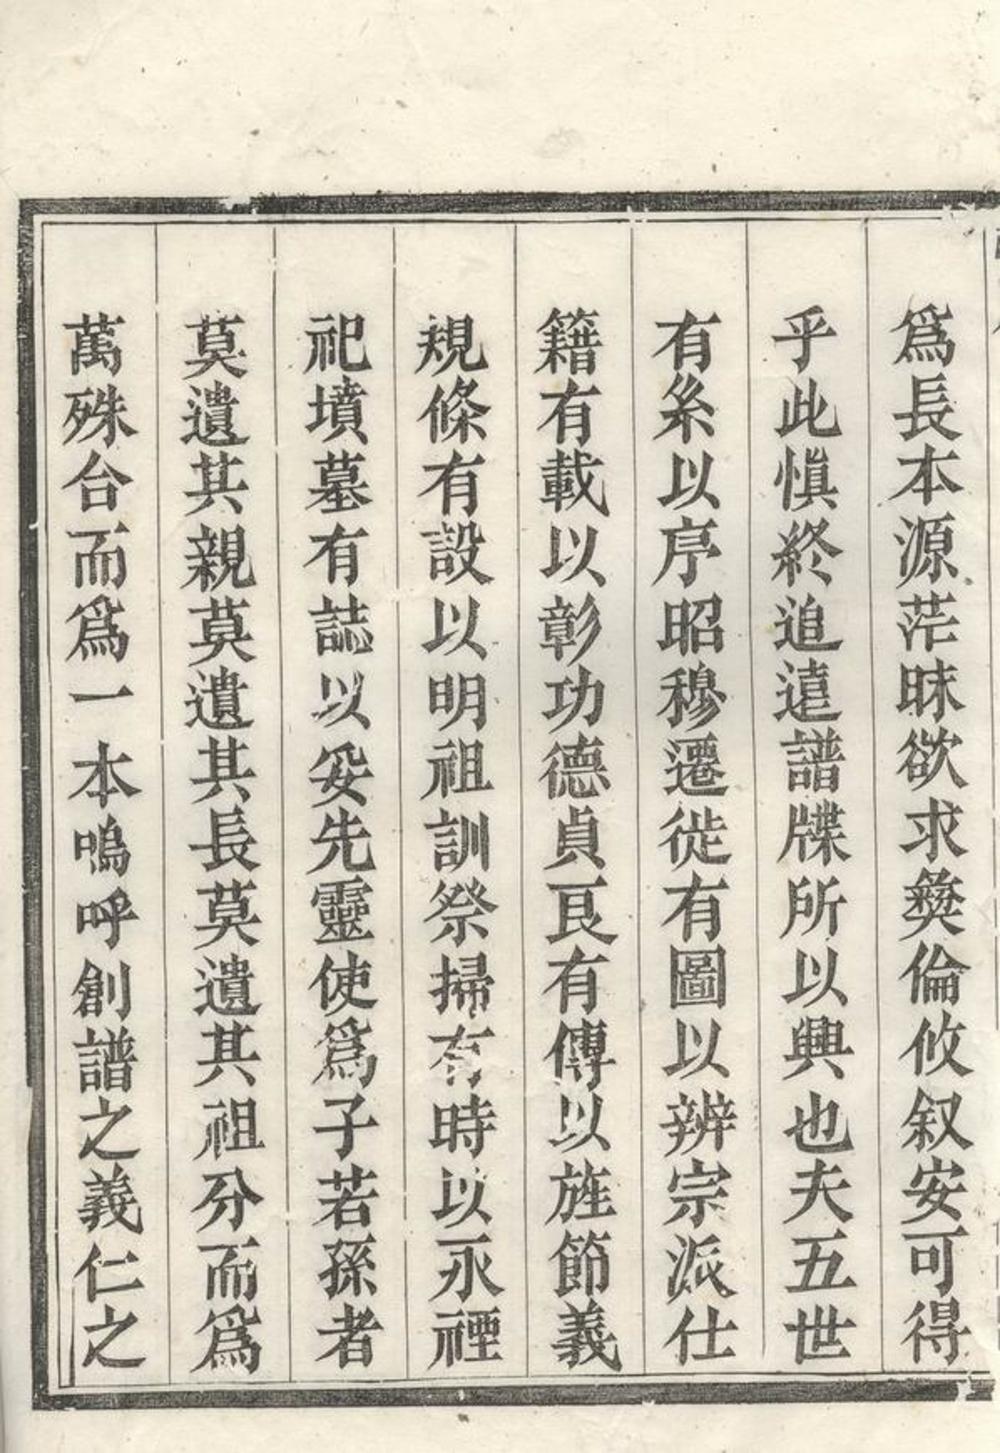 爲長本源茫昧欲求彜倫攸叙安可得
乎此愼終追遠譜牒所以興也夫五世
有系以序昭穆遷徙有圖以辨宗派仕
籍有載以彰功德貞良有傳以旌節義
規條有設以明祖訓祭掃有時以永禋
祀墳墓有誌以妥先靈使爲子若孫者
莫遺其親莫遺其長莫遺其祖分而爲
萬殊台而爲一本嗚呼創譜之義仁之